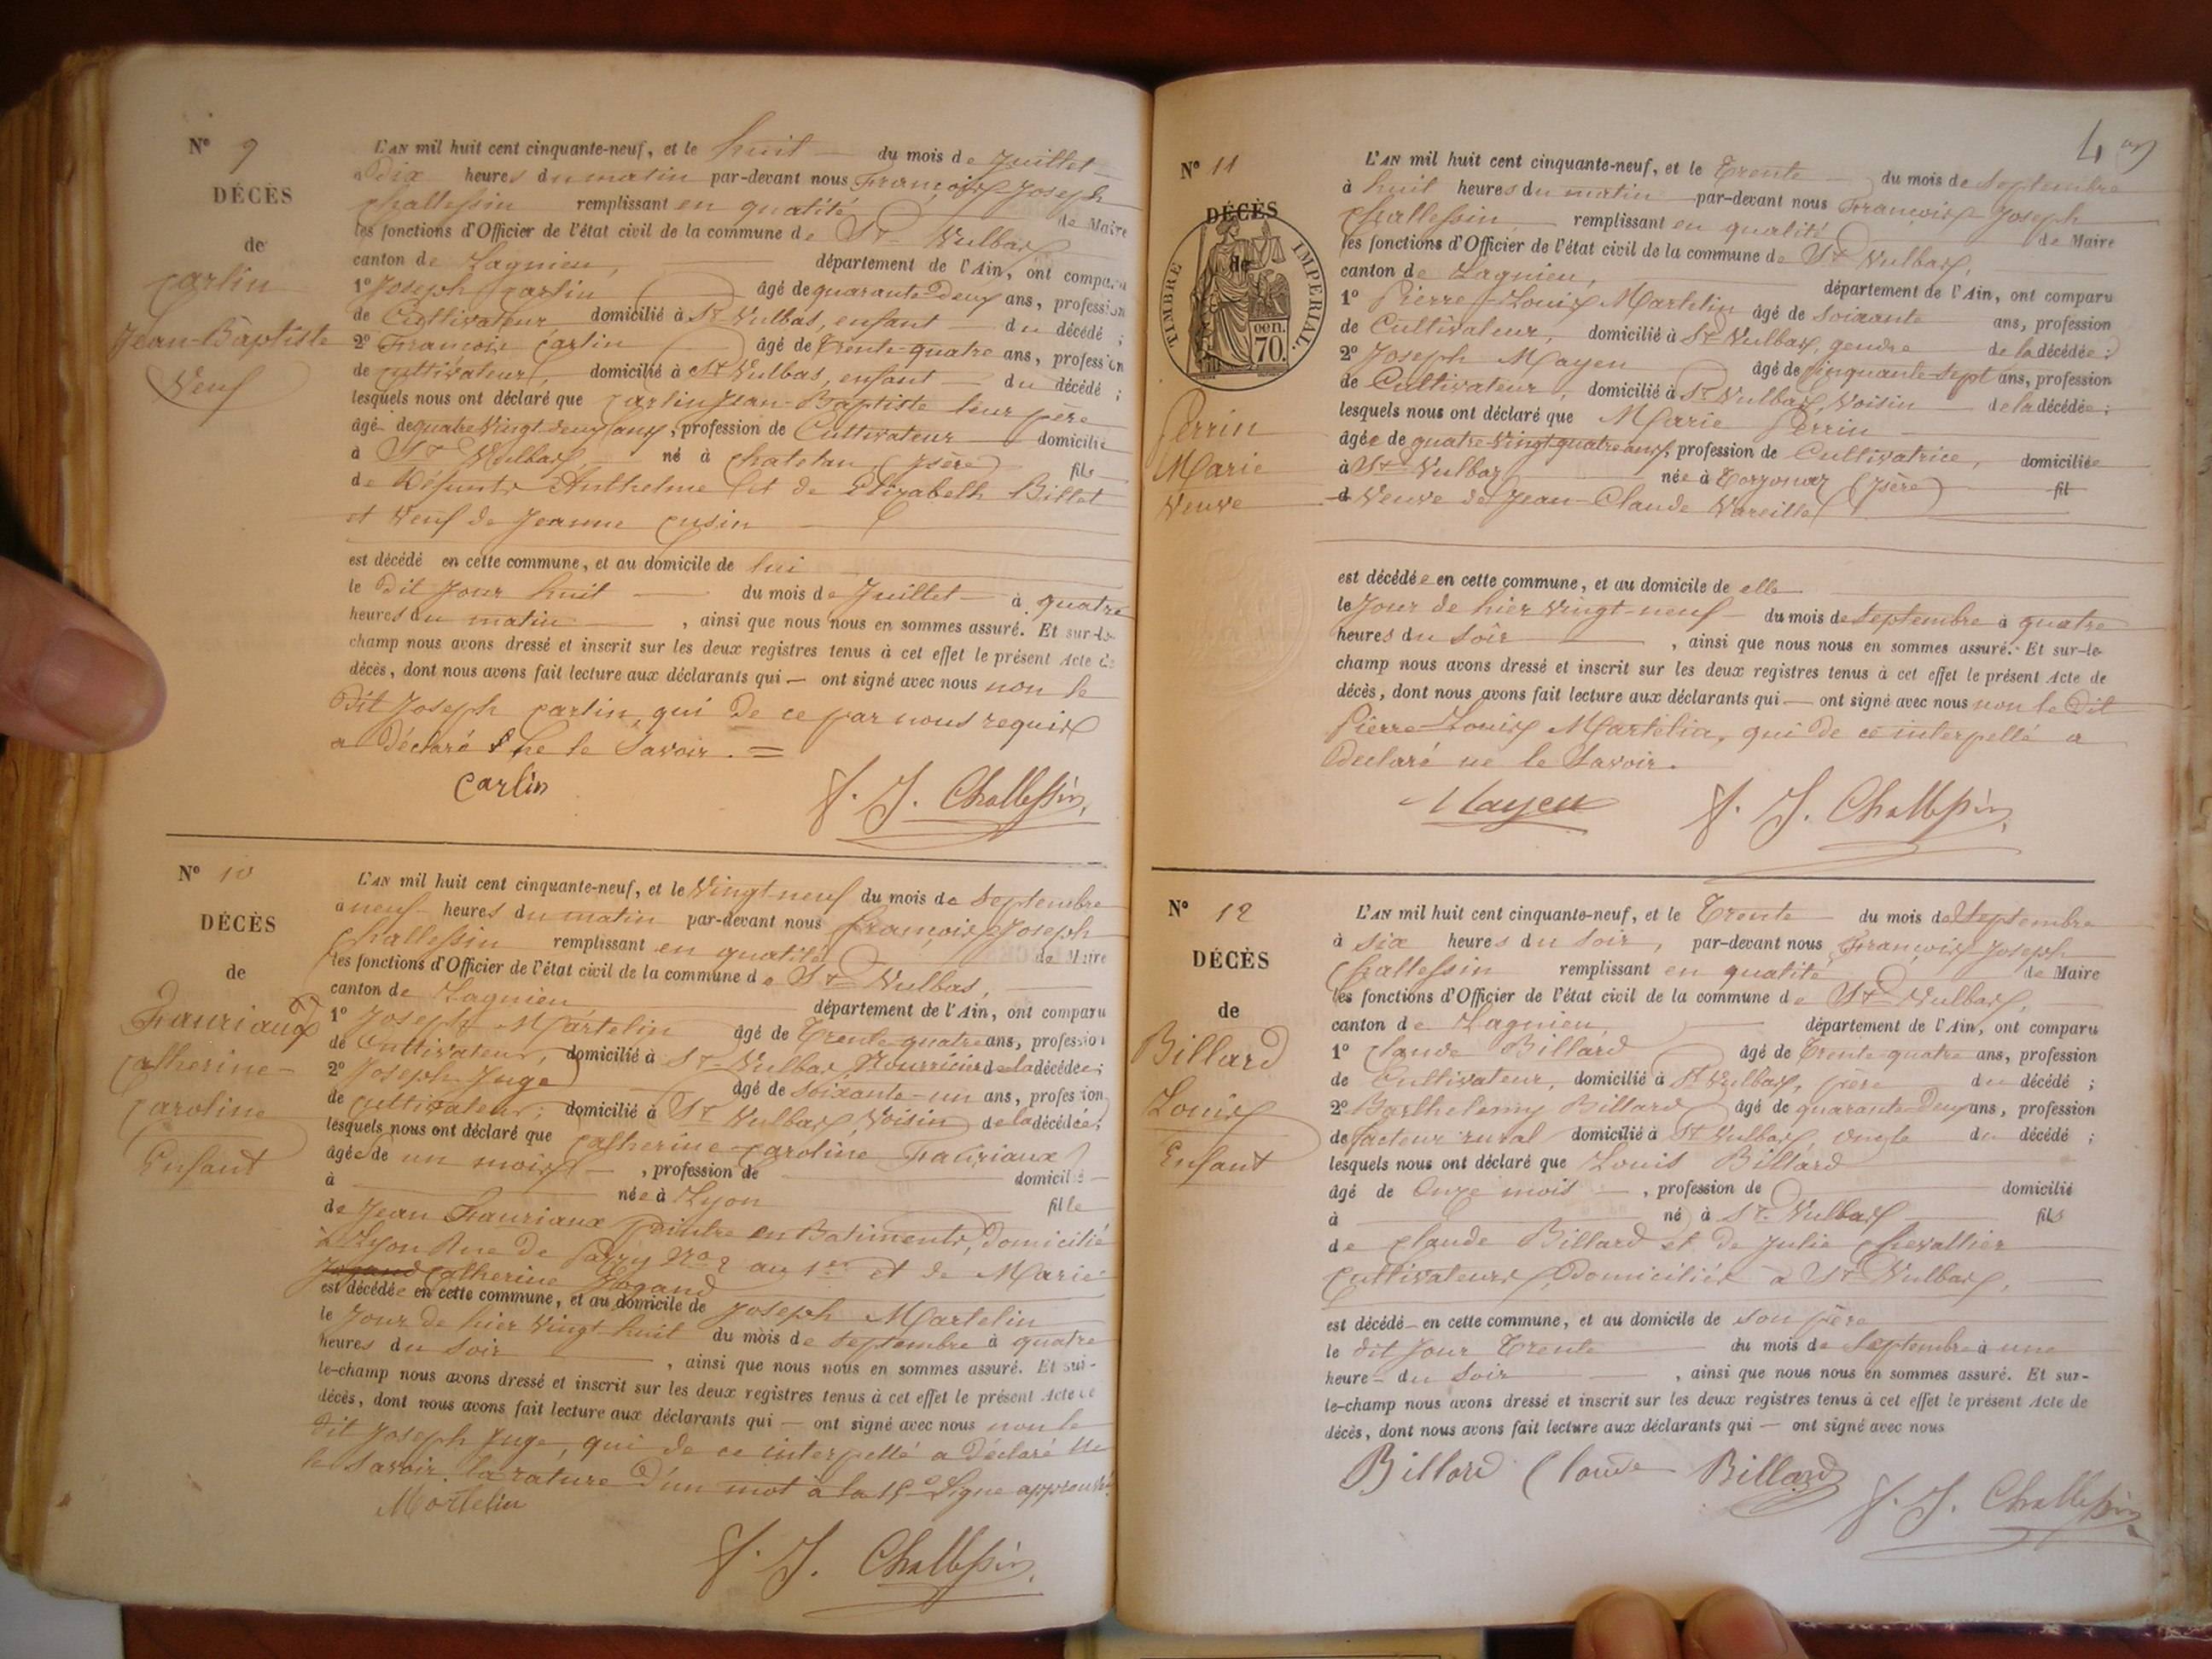 N° 9
DÉCÈS
de
Carlin
Jean-Baptiste
Veuf
L'AN mil huit cent cinquante-neuf, et le huit du mois de Juillet
à Dix heures du matin par-devant nous François Joseph
Challessin remplissant en qualité de Maire
les fonctions d'Officier de l'état civil de la commune de St Vulbas
canton de Lagnieu, département de l'Ain, ont comparu
1° Joseph Carlin âgé de quarante-Deux ans, profession
de Cultivateur domicilié à St Vulbas, enfant du décédé ;
2° François Carlin âgé de Trente-quatre ans, profession
de Cultivateur, domicilié à St Vulbas, enfant du décédé ;
lesquels nous ont déclaré que Carlin Jean-Baptiste leur père
âgé de quatre Vingt-deux ans, profession de Cultivateur domicilié
à St Vulbas né à Chatelan (Isère) fils
de Défunts Anthelme et de Elizabeth Billet
et Veuf de Jeanne Cusin
est décédé en cette commune, et au domicile de lui
le Dit Jour huit du mois de Juillet à quatre
heures du matin, ainsi que nous nous en sommes assuré. Et sur-le-
champ nous avons dressé et inscrit sur les deux registres tenus à cet effet le présent Acte de
décès, dont nous avons fait lecture aux déclarants qui — ont signé avec nous non le
Dit Joseph Carlin, qui de ce par nous requis
a Déclaré ne le Savoir. =
Carlin F. J. Challessin
N° 10
DÉCÈS
de
Fauriaux
Catherine-
Caroline
Enfant
L'AN mil huit cent cinquante-neuf, et le Vingt-neuf du mois de Septembre
à neuf heures du matin par-devant nous François Joseph
Challessin remplissant en qualité de Maire
les fonctions d'Officier de l'état civil de la commune de St Vulbas,
canton de Lagnieu département de l'Ain, ont comparu
1° Joseph Martelin âgé de Trente-quatre ans, profession
de Cultivateur, domicilié à St Vulbas Nourricier de la décédée ;
2° Joseph Juge âgé de Soixante-un ans, profession
de Cultivateur, domicilié à St Vulbas, Voisin de la décédée ;
lesquels nous ont déclaré que Catherine-Caroline Fauriaux
âgée de un mois, profession de domicilié
à née à Lyon fille
de Jean Fauriaux peintre en Batiments, Domicilié
à Lyon Rue de No 2 au 1er et de Marie
Catherine Jogand
est décédée en cette commune, et au domicile de Joseph Martelin
le Jour de hier Vingt-huit du mois de Septembre à quatre
heures du Soir, ainsi que nous nous en sommes assuré. Et sur-
le-champ nous avons dressé et inscrit sur les deux registres tenus à cet effet le présent Acte de
décès, dont nous avons fait lecture aux déclarants qui — ont signé avec nous non le
Dit Joseph Juge, qui de ce interpellé a Déclaré Ne
le Savoir. la rature D'un mot à la 15e Ligne approuvé
Martelin
F. J. Challessin
4
N° 11
DÉCÈS
de
TIMBRE IMPERIAL
cen.
70.
Perrin
Marie
Veuve
L'AN mil huit cent cinquante-neuf, et le Trente du mois de Septembre
à huit heures du matin par-devant nous François Joseph
Challessin remplissant en qualité de Maire
les fonctions d'Officier de l'état civil de la commune de St Vulbas,
canton de Lagnieu, département de l'Ain, ont comparu
1° Pierre-Louis Martelin âgé de Soixante ans, profession
de Cultivateur, domicilié à St Vulbas, gendre de la décédée ;
2° Joseph Mayeu âgé de Cinquante-Sept ans, profession
de Cultivateur, domicilié à St Vulbas, Voisin de la décédée ;
lesquels nous ont déclaré que Marie Perrin
âgée de quatre-Vingt-quatre ans, profession de Cultivatrice, domiciliée
à St Vulbas née à (Isère) fil
d Veuve de Jean-Claude Vareille
est décédée en cette commune, et au domicile de elle
le Jour de hier Vingt-neuf du mois de Septembre à quatre
heures du Soir, ainsi que nous nous en sommes assuré. Et sur-le-
champ nous avons dressé et inscrit sur les deux registres tenus à cet effet le présent Acte de
décès, dont nous avons fait lecture aux déclarants qui — ont signé avec nous non le Dit
Pierre-Louis Martelin, qui de ce interpellé a
Declaré ne le Savoir.
Mayeu F. J. Challessin
N° 12
DÉCÈS
de
Billard
Louis
Enfant
L'AN mil huit cent cinquante-neuf, et le Trente du mois de Septembre
à Six heures du Soir, par-devant nous François Joseph
Challessin remplissant en qualité de Maire
les fonctions d'Officier de l'état civil de la commune de St Vulbas,
canton de Lagnieu, département de l'Ain, ont comparu
1° Claude Billard âgé de Trente-quatre ans, profession
de Cultivateur, domicilié à St Vulbas, père du décédé ;
2° Barthelemy Billard âgé de quarante-Deux ans, profession
de facteur rural domicilié à St Vulbas, oncle du décédé ;
lesquels nous ont déclaré que Louis Billard
âgé de Onze mois, profession de domicilié
à né à St Vulbas fils
de Claude Billard et de Julie Chevallier
Cultivateurs, Domiciliés à St Vulbas,
est décédé en cette commune, et au domicile de son père
le dit Jour Trente du mois de Septembre à une
heure du Soir, ainsi que nous nous en sommes assuré. Et sur-
le-champ nous avons dressé et inscrit sur les deux registres tenus à cet effet le présent Acte de
décès, dont nous avons fait lecture aux déclarants qui — ont signé avec nous
Billard Claude Billard F. J. Challessin